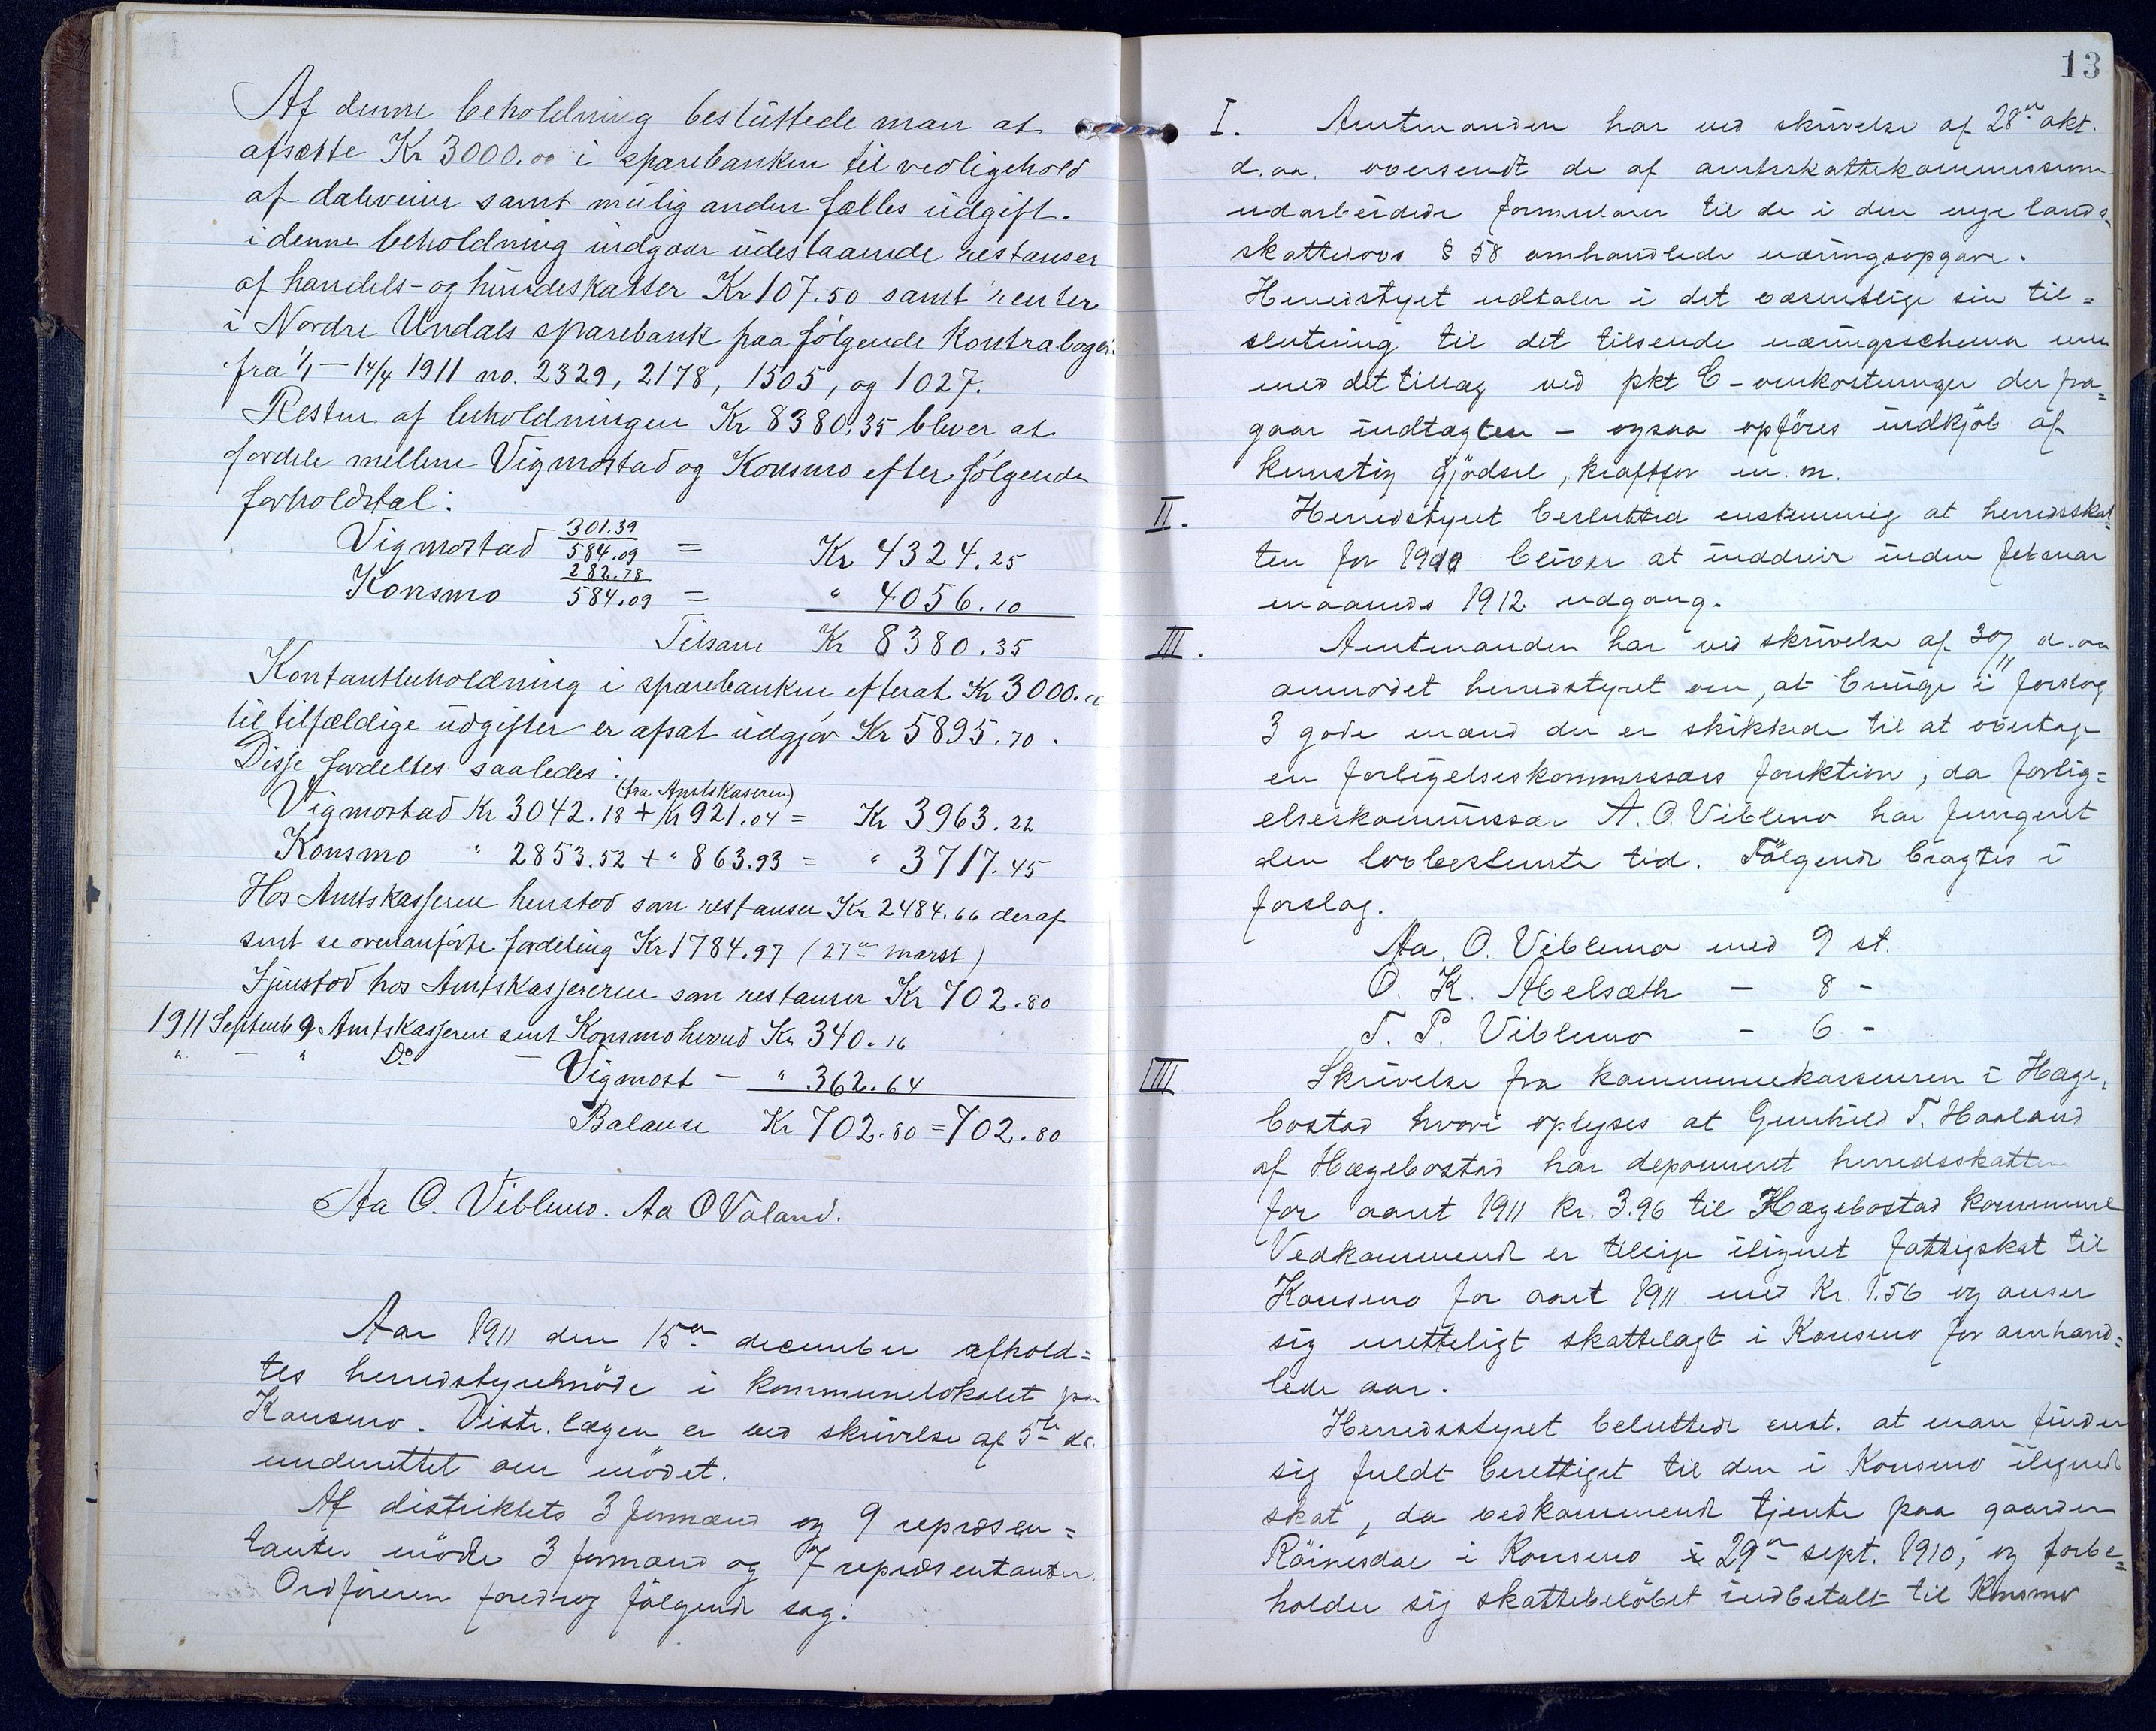 Af denne beholdning besluttede man at
afsætte Kr 3000.00 i sparebanken til vedligehold
af dalveien samt mulig anden fælles udgift.
i denne beholdning indgaar udestaaende restanser
af handels- og hundeskatter Kr 107.50 samt renter
i Nordre Undals sparebank paa følgende Kontrabøger
fra 1/1 - 14/4 1911 no. 2329, 2178, 1505, og 1027.
Resten af beholdningen Kr 8380.35 bliver at
fordele mellem Vigmostad og Konsmo efter følgende
forholdstal:
Vigmostad 301.39/584.09 = Kr 4324.25
Konsmo 282.78/584.09 = " 4056.10
Tilsam Kr 8380.35
Kontantbeholdning i sparebanken efterat Kr 3000.00
til tilfældige udgifter er afsat udgjør Kr 5895.70.
Disse fordeltes saaledes:
(fra Amtskaseren)
Vigmostad Kr 3042.18 + Kr 921.04 = Kr 3963.22
Konsmo " 2853.52 + " 863.93 = " 3717.45
Hos Amtskasseren henstod som restanser Kr 2484.66 deraf
sent se ovenanførte fordeling Kr 1784.97 (27de marst)
Igjenstod hos Amtskassereren som restanser Kr 702.80
1911 Septemb 9 Amtskasseren sent Konsmo herred Kr 340.16
" — " Do — Vigmost — " 362.64
Balanse Kr 702.80 = 702.80
Aa O. Viblemo. Aa O Valand.
Aar 1911 den 15de december afhold=
tes herredstyremøde i kommunelokalet paa
Konsmo. Distr. lægen er ved skrivelse af 5te ds.
underrettet om mødet.
Af distriktets 3 formænd og 9 repræsen=
tanter mødte 3 formænd og 7 repræsentanter.
Ordføreren foredrog følgende sag:
13
I. Amtmanden har ved skrivelse af 28de okt.
d.aa. oversendt de af amtsskattekommissionen
udarbeidede formularer til de i den nye lands=
skattelovs § 58 omhandlede næringsopgave.
Herredstyret udtaler i det væsentlige sin til=
slutning til det tilsendte næringsschema men
med det tillæg ved pkt C - omkostninger der fra=
gaar indtægten - ogsaa opføres indkjøb af
kunstig gjødsel, kraftfor m. m.
II. Herredstyret beslutted enstemmig at herredsskat=
ten for 1911 bliver at inddrive inden februar
maaneds 1912 udgang.
III. Amtmanden har ved skrivelse af 30/11 d.aa
anmodet herredstyret om, at bringe i forslag
3 gode mænd der er skikkede til at overtage
en forligelseskommissærs funktion, da forlig=
elseskommissær A. O. Viblemo har fungeret
den lovbestemte tid. Følgende bragtes i
forslag.
Aa. O. Viblemo med 9 st.
O. K. Abelsæth - 8 -
T. P. Viblemo - 6 -
IIII Skrivelse fra kommunekassereren i Hæge=
bostad hvori oplyses at Gunhild T. Haaland
af Hægebostad har deponeret herredsskatten
for aaret 1911 kr. 3.96 til Hægebostad kommune
Vedkommende er tillige ilignet fattigskat til
Konsmo for aaret 1911 med Kr. 1.56 og anser
sig uretteligt skattelagt i Konsmo for omhand=
lede aar.
Herredsstyret beluttede enst. at man finder
sig fuldt berettiget til den i Konsmo ilignede
skat, da vedkommende tjente paa gaarden
Röinesdal i Konsmo 29de sept. 1910, og forbe=
holder sig skattebeløbet indbetalt til Konsmo